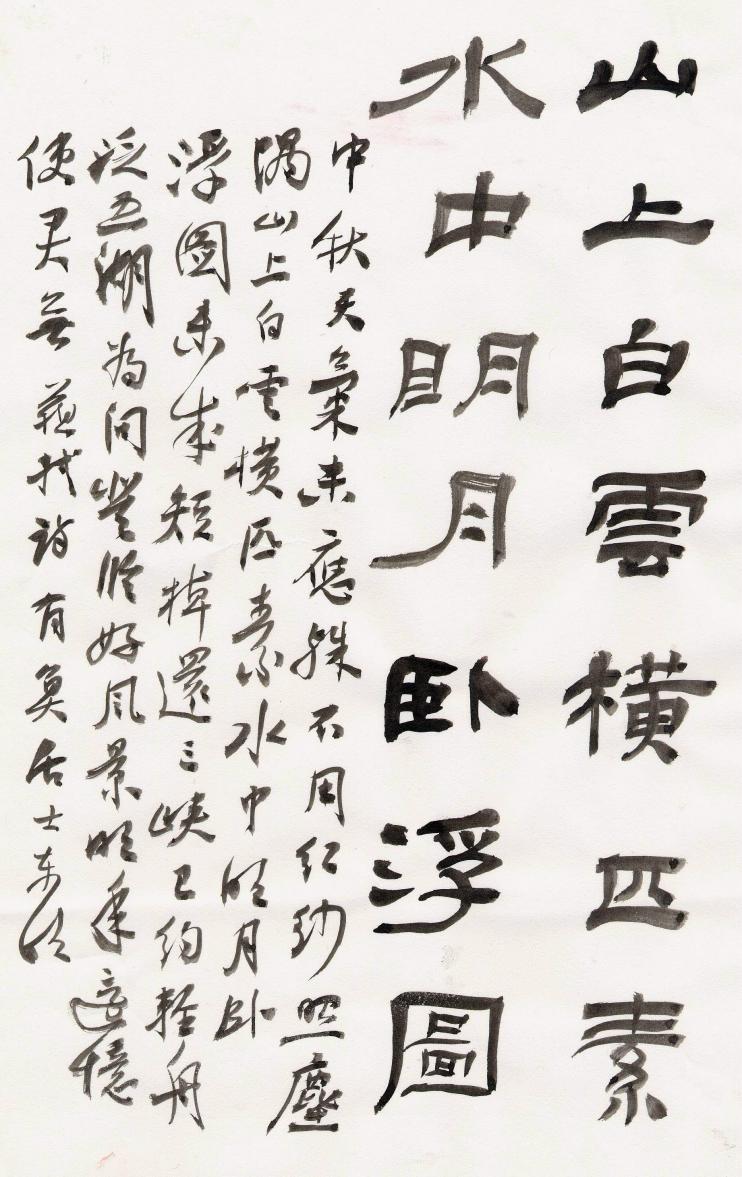 山上白雲橫匹素
水中明月卧浮圖
中秋天氣未應殊不用紅紗照座
隅山上白雲橫匹素水中明月卧
浮圖未成短棹還三峽已約輕舟
泛五湖為問登臨好風景明年還憶
使君無蘇軾詩有莫居士